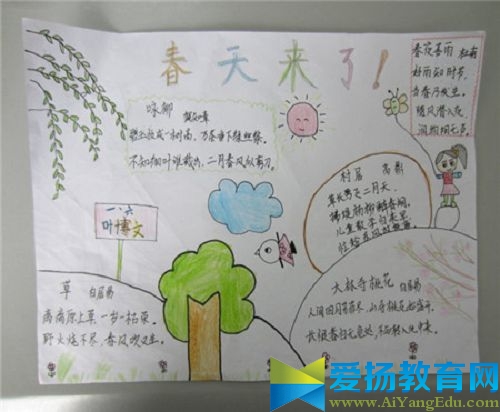 春天来了!
咏柳 贺知章
碧玉妆成一树高,万条垂下绿丝绦。
不知细叶谁裁出,二月春风似剪刀。
春夜喜雨 杜甫
好雨知时节,
当春乃发生。
随风潜入夜,
润物细无声。
村居 高鼎
草长莺飞二月天,
拂堤杨柳醉春烟。
儿童散学归来早,
忙趁东风放纸鸢。
一、六
叶博文
草 白居易
离离原上草,一岁一枯荣。
野火烧不尽,春风吹又生。
大林寺桃花 白居易
人间四月芳菲尽,山寺桃花始盛开。
长恨春归无觅处,不知转入此中来。
爱扬教育网
www.AiYangEdu.com